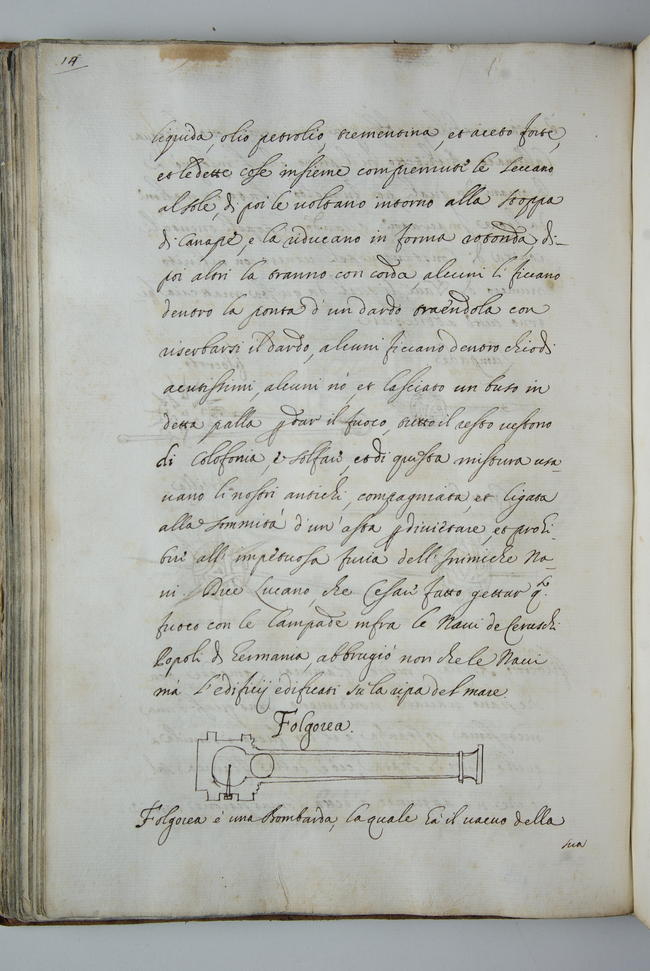 14
liquida, olio petrolio, trementina, et aceto forte,
et le dette cose insieme compremute le seccano
al sole, di poi le voltano intorno alla stoppa
di Canape e la riducano in forma rotonda, di-
poi altri la tranno con corda, alcuni li ficcano
dentro la ponta d'un dardo traendola con
riserbarsi il dardo, alcuni ficcano dentro chiodi
acutissimi, alcuni nò, et lasciato un buso in
detta palla p dar il fuoco, tutto il resto vestono
di Colofonia, e solfaro, et di questa mistura usa-
vano li nostri antichi, compagniata, et ligata
alla sommità d'un'asta p divertare, et prohi-
bir all' impetuosa furia dell' Inimiche Na-
vi. Dice Lucano, che Cesare fatto gettar q.
fuoco con le lampade infra le Navi de Ceruschi
Popoli di Germania, abbrugiò non che le Navi
mà l'edificij edificati su la ripa del mare
Folgorea.
Folgorea è una Bombarda, la quale hà il vacuo della
sua